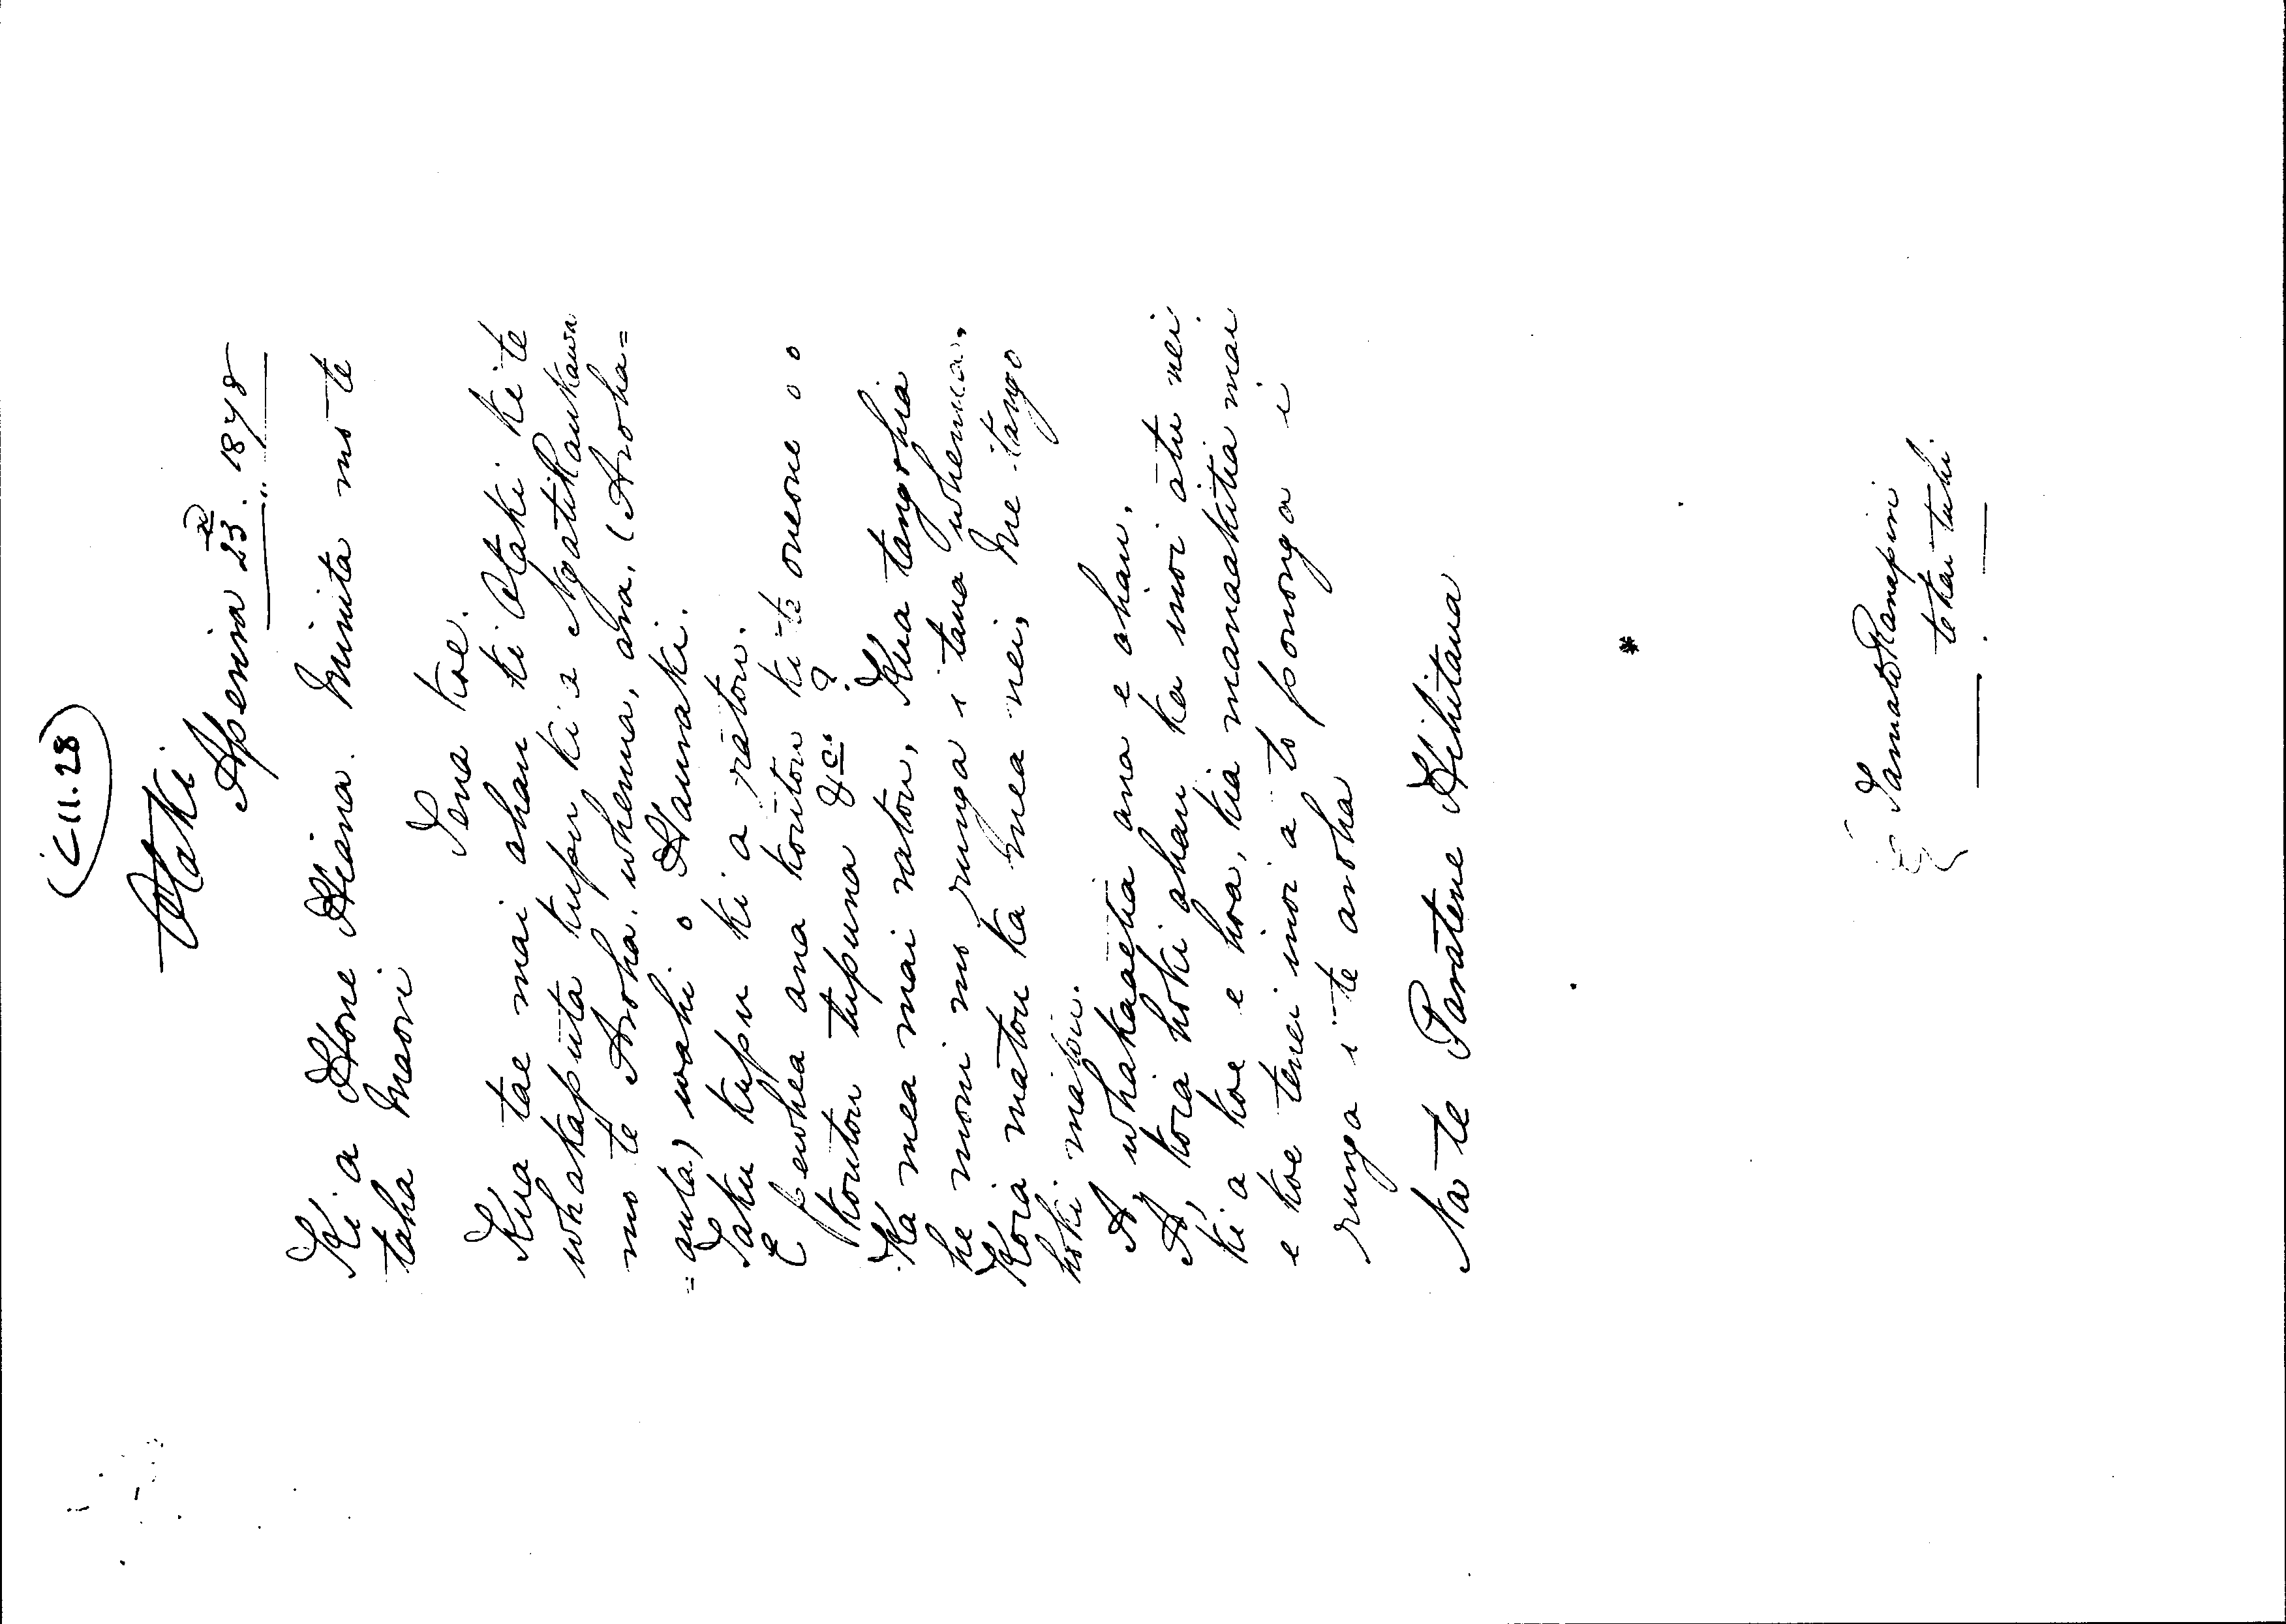 (C11.28)
Otaki
Aperira 23rd. 1878
Ki a Hone Hiana. Minita mo te
taha Maori
Tena koe.
Kua tae mai ahau ki Otaki ki te
whakaputa kupu ki a Ngatiraukawa
mo te Aroha. whenua, ara, (Aroha=
=auta) wahi o Hauraki.
Taku kupu ki a ratou.
E pewhea ana koutou ki te oneone o o
koutou tupuna &c. ?
Ka mea mai ratou, Kua tangohia
he moni mo runga i taua whenua,
Koia matou ka mea nei, Me tango
hoki matou.
A whakaaetia ana e ahau.
A, koia hoki ahau ka inoi atu nei
ki a koe e hoa, kia manaakitia mai
e koe tenei inoi a to pononga i
runga i te aroha
Na te Paratene Hihitaua
*
Tamato Ranapiri
te kai tuhi.